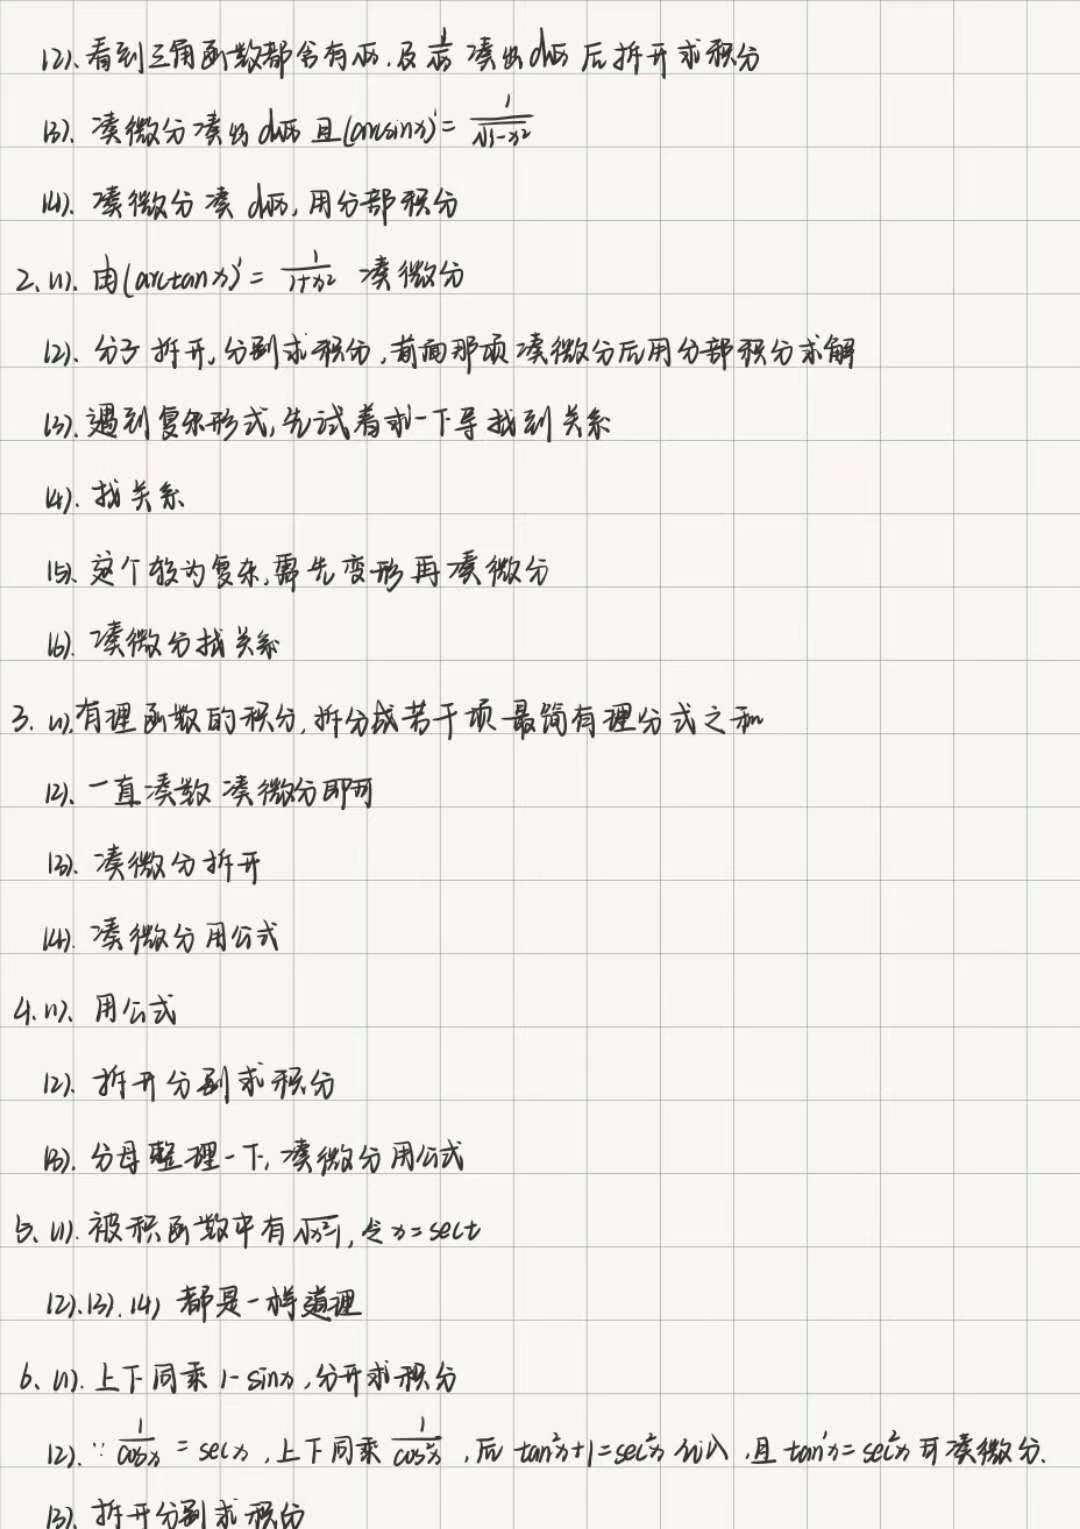 (2). 看到三角函数都含有√x, 及 1/√x 凑出 d√x 后拆开求积分
(3). 凑微分凑出 d√x 且 (arcsinx)' = 1/√(1-x²)
(4). 凑微分凑 d√x, 用分部积分
2. (1). 由 (arctanx)' = 1/(1+x²) 凑微分
(2). 分子拆开, 分别求积分, 前面那项凑微分后用分部积分求解
(3). 遇到复杂形式, 先试着求一下导找到关系
(4). 找关系
(5). 这个较为复杂, 需先变形再凑微分
(6). 凑微分找关系
3. (1). 有理函数的积分, 拆分成若干项最简有理分式之和
(2). 一直凑数凑微分即可
(3). 凑微分拆开
(4). 凑微分用公式
4. (1). 用公式
(2). 拆开分别求积分
(3). 分母整理一下, 凑微分用公式
5. (1). 被积函数中有√(x²-1), 令 x = sect
(2). (3). (4) 都是一样道理
6. (1). 上下同乘 1-sinx, 分开求积分
(2). ∵ 1/cosx = secx, 上下同乘 1/cos²x, 后 tan²x+1=sec²x 代入, 且 tan'x = sec²x 可凑微分.
(3). 拆开分别求积分